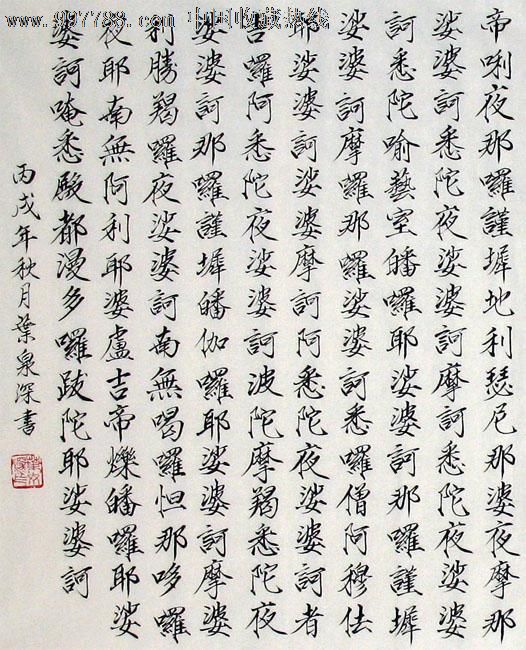 www.997788.com 中国收藏热线
帝唎夜那囉謹墀地利瑟尼那婆夜摩那
娑婆訶悉陀夜娑婆訶摩訶悉陀夜娑婆
訶悉陀喻藝室皤囉耶娑婆訶那囉謹墀
娑婆訶摩囉那囉娑婆訶悉囉僧阿穆佉
耶娑婆訶娑婆摩訶阿悉陀夜娑婆訶者
吉囉阿悉陀夜娑婆訶波陀摩羯悉陀夜
娑婆訶那囉謹墀皤伽囉耶娑婆訶摩婆
利勝羯囉夜娑婆訶南無喝囉怛那哆囉
夜耶南無阿利耶婆盧吉帝爍皤囉耶娑
婆訶唵悉殿都漫多囉跋陀耶娑婆訶
丙戌年秋月葉泉深書